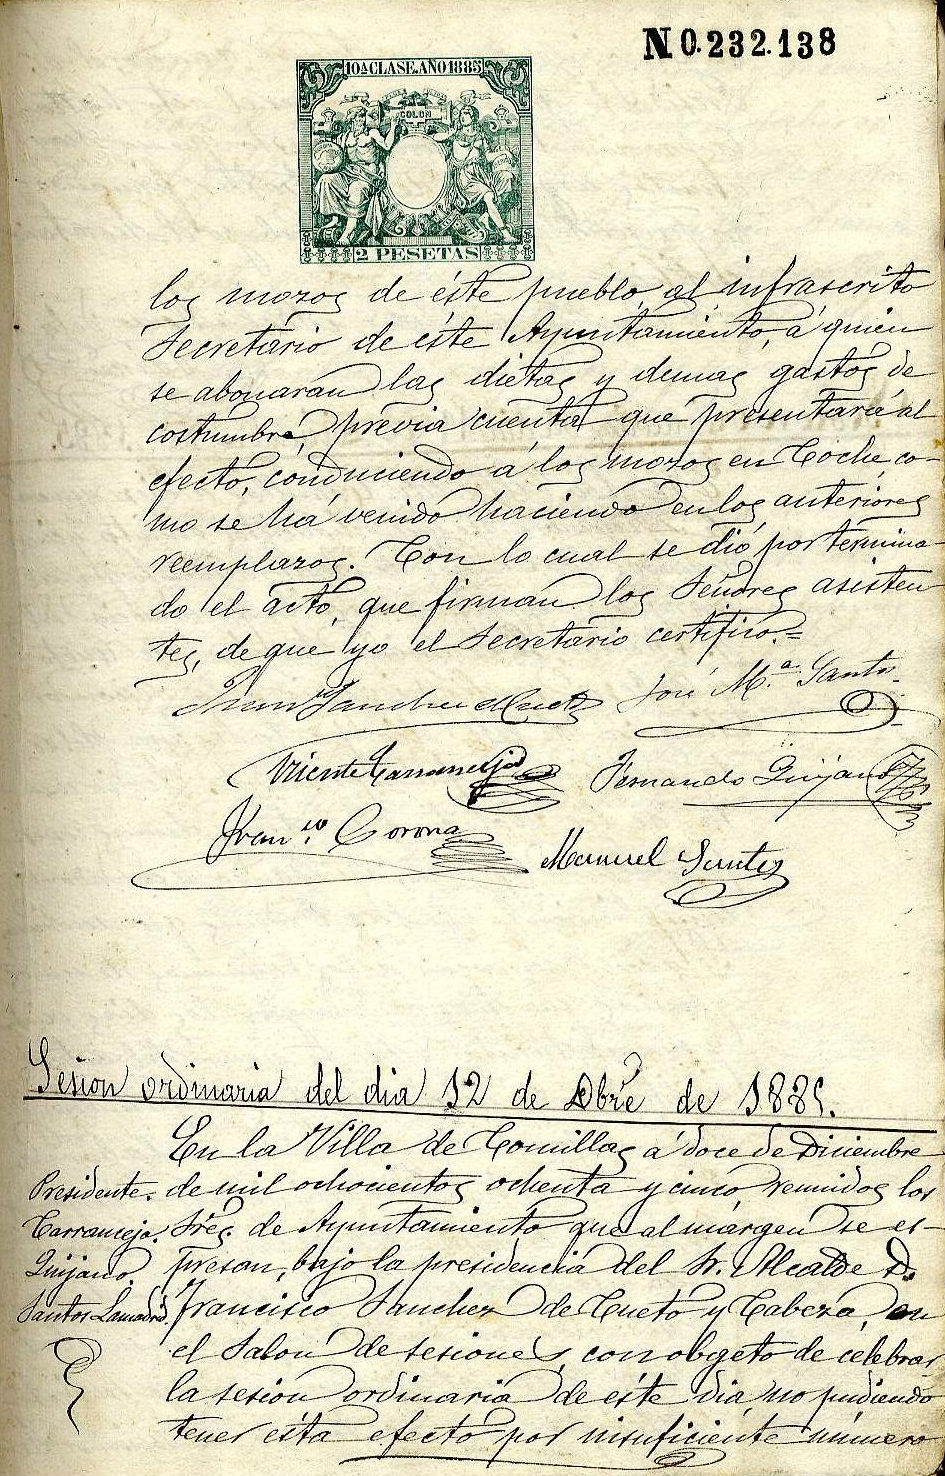 N 0.232.138
10ª CLASE. AÑO 1885
COLON
2 PESETAS
los mozos de éste pueblo, al infrascrito
Secretario de éste Ayuntamiento, á quien
se abonaran las dietas y demas gastos de
costumbre, previa cuenta que presentará al
efecto, conduciendo á los mozos en Coche co-
mo se há venido haciendo en los anteriores
reemplazos. Con lo cual se dió por termina-
do el acto, que firman los Señores asisten
tes, de que yo el Secretario certifico.=
Juan Sanchez Cueto José M.ª Santos
Vicente Tarranceja Fernando Quijano
Fran.co Corona
Manuel Santos
Sesion ordinaria del dia 12 de Dbre de 1885.
En la Villa de Comillas á doce de Diciembre
Presidente. de mil ochocientos ochenta y cinco reunidos los
Tarranceja. Sres. de Ayuntamiento que al márgen se es-
Quijano. presan, bajo la presidencia del Sr. Alcalde D.
Santos Lamadrid Francisco Sanchez de Cueto y Cabeza, en
el Salon de sesiones, con obgeto de celebrar
la sesion ordinaria de éste dia, no pudiendo
tener ésta efecto por insuficiente número